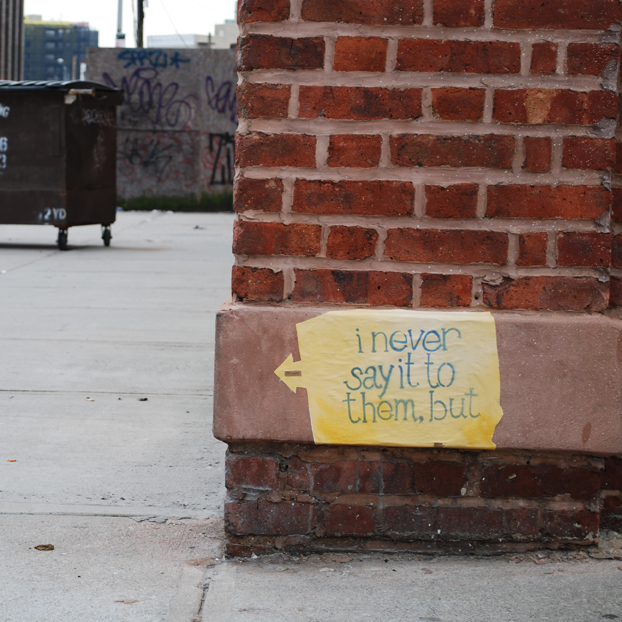 i never
say it to
them, but
2YD